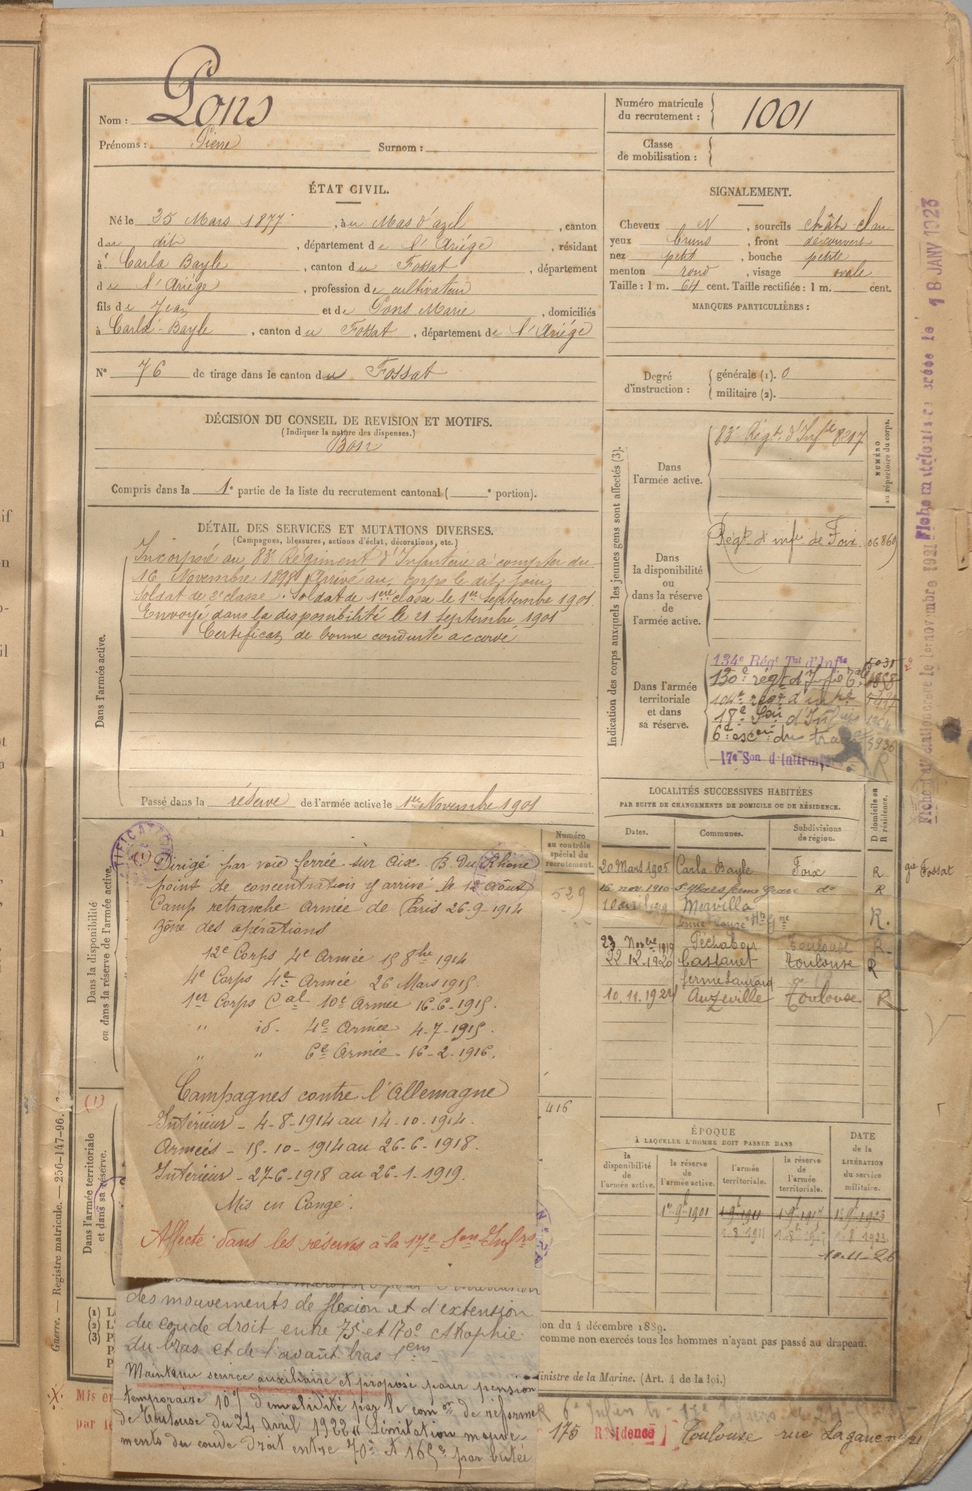 Nom : Pons
Prénoms : Pierre Surnom :
Numéro matricule du recrutement : 1001
Classe de mobilisation :
ÉTAT CIVIL.
Né le 25 Mars 1877, à u Mas d'azil, canton
du dit, département de l'Ariège, résidant
à Carla Bayle, canton du Fossat, département
de l'Ariège, profession de cultivateur
fils de Jean et de Pons Marie, domiciliés
à Carla-Bayle, canton du Fossat, département de l'Ariège
N° 76 de tirage dans le canton du Fossat
SIGNALEMENT.
Cheveux N, sourcils chât clair
yeux bruns, front découvert
nez petit, bouche petite
menton rond, visage ovale
Taille : 1 m. 64 cent. Taille rectifiée : 1 m. cent.
MARQUES PARTICULIÈRES :
Degré d'instruction : générale (1). 0
militaire (2).
DÉCISION DU CONSEIL DE REVISION ET MOTIFS.
(Indiquer la nature des dispenses.)
Bon
Compris dans la 1e partie de la liste du recrutement cantonal ( e portion).
DÉTAIL DES SERVICES ET MUTATIONS DIVERSES.
(Campagnes, blessures, actions d'éclat, décorations, etc.)
Dans l'armée active.
Incorporé au 83e Régiment d'Infanterie à compter du
16 Novembre 1898 Arrivé au corps le dit jour
Soldat de 2e classe. Soldat de 1ère classe le 1er Septembre 1901
Envoyé dans la disponibilité le 21 septembre 1901
Certificat de bonne conduite accordé
Passé dans la réserve de l'armée active le 1er Novembre 1901
Indication des corps auxquels les jeunes gens sont affectés (3).
NUMÉRO au répertoire du corps.
Dans l'armée active.
83e Régt. d'Infie
Dans la disponibilité ou dans la réserve de l'armée active.
Régt d'infie de Foix
Dans l'armée territoriale et dans sa réserve.
134e Régt Tal d'Infie
130e régt d'Infie
18e Son d'Inf
6e escon du train
17e Son d'Infirm
LOCALITÉS SUCCESSIVES HABITÉES
PAR SUITE DE CHANGEMENTS DE DOMICILE OU DE RÉSIDENCE.
Dates. Communes. Subdivisions de région. D domicile ou R résidence.
20 Mars 1905 Carla Bayle Foix R Fossat
15 nov. 1910 do R
Mervilla R.
23 Nov 1919 Péchabou Toulouse R
22.12.1920 Castanet Toulouse R
10.11.1924 Auzeville Toulouse R
Numéro au contrôle spécial du recrutement.
529
416
Dans la disponibilité ou dans la réserve de l'armée active
Dirigé par voie ferrée sur Aix B du Rhône
point de concentration y arrivé le 12 août
Camp retranché armée de Paris 26-9-1914
Zône des opérations
12e Corps 4e Armée 15 8bre 1914
4e Corps 4e Armée 26 Mars 1915.
1er Corps Cal 10e Armée 16-6-1915.
" id. 4e Armée 4-7-1915.
" " 6e Armée - 16-2-1916.
Campagnes contre l'Allemagne
Intérieur - 4-8-1914 au 14-10-1914.
Armées - 15-10-1914 au 26-6-1918.
Intérieur - 27-6-1918 au 26-1-1919.
Mis en Congé.
Affecté dans les réserves à la 17e Son Infirs
(1)
Dans l'armée territoriale et dans sa réserve.
ÉPOQUE
À LAQUELLE L'HOMME DOIT PASSER DANS
la disponibilité de l'armée active. la réserve de l'armée active. l'armée territoriale. la réserve de l'armée territoriale.
DATE de la LIBÉRATION du service militaire.
10-11-26
des mouvements de flexion et d'extension
du coude droit entre 75° et 170° Atrophie
du bras et de l'avant bras 1cm
Maintenu service auxiliaire et proposé pour pension
temporaire 10% d'invalidité par la comon de réforme
de Toulouse du 24 avril 1922 "Limitation mouve-
ments du coude droit entre 70° et 165° par butée
on du 4 décembre 1889.
comme non exercés tous les hommes n'ayant pas passé au drapeau.
inistre de la Marine. (Art. 4 de la loi.)
Mis en
par l
175 Résidence Toulouse rue Laganne
Guerre. — Registre matricule. — 256-147-96.
Fiche matriculaire créée le 18 JANV 1923